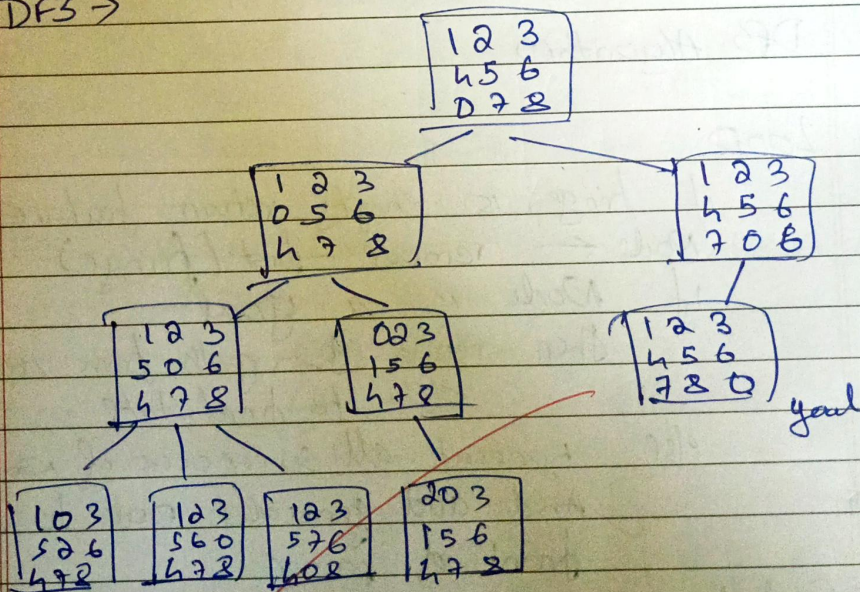 DFS →
1 2 3
4 5 6
0 7 8
1 2 3
0 5 6
4 7 8
1 2 3
4 5 6
7 0 6
1 2 3
5 0 6
4 7 8
0 2 3
1 5 6
4 7 8
1 2 3
4 5 6
7 8 0
goal
1 0 3
5 2 6
4 7 8
1 2 3
5 6 0
4 7 8
1 2 3
5 7 6
4 0 8
2 0 3
1 5 6
4 7 8